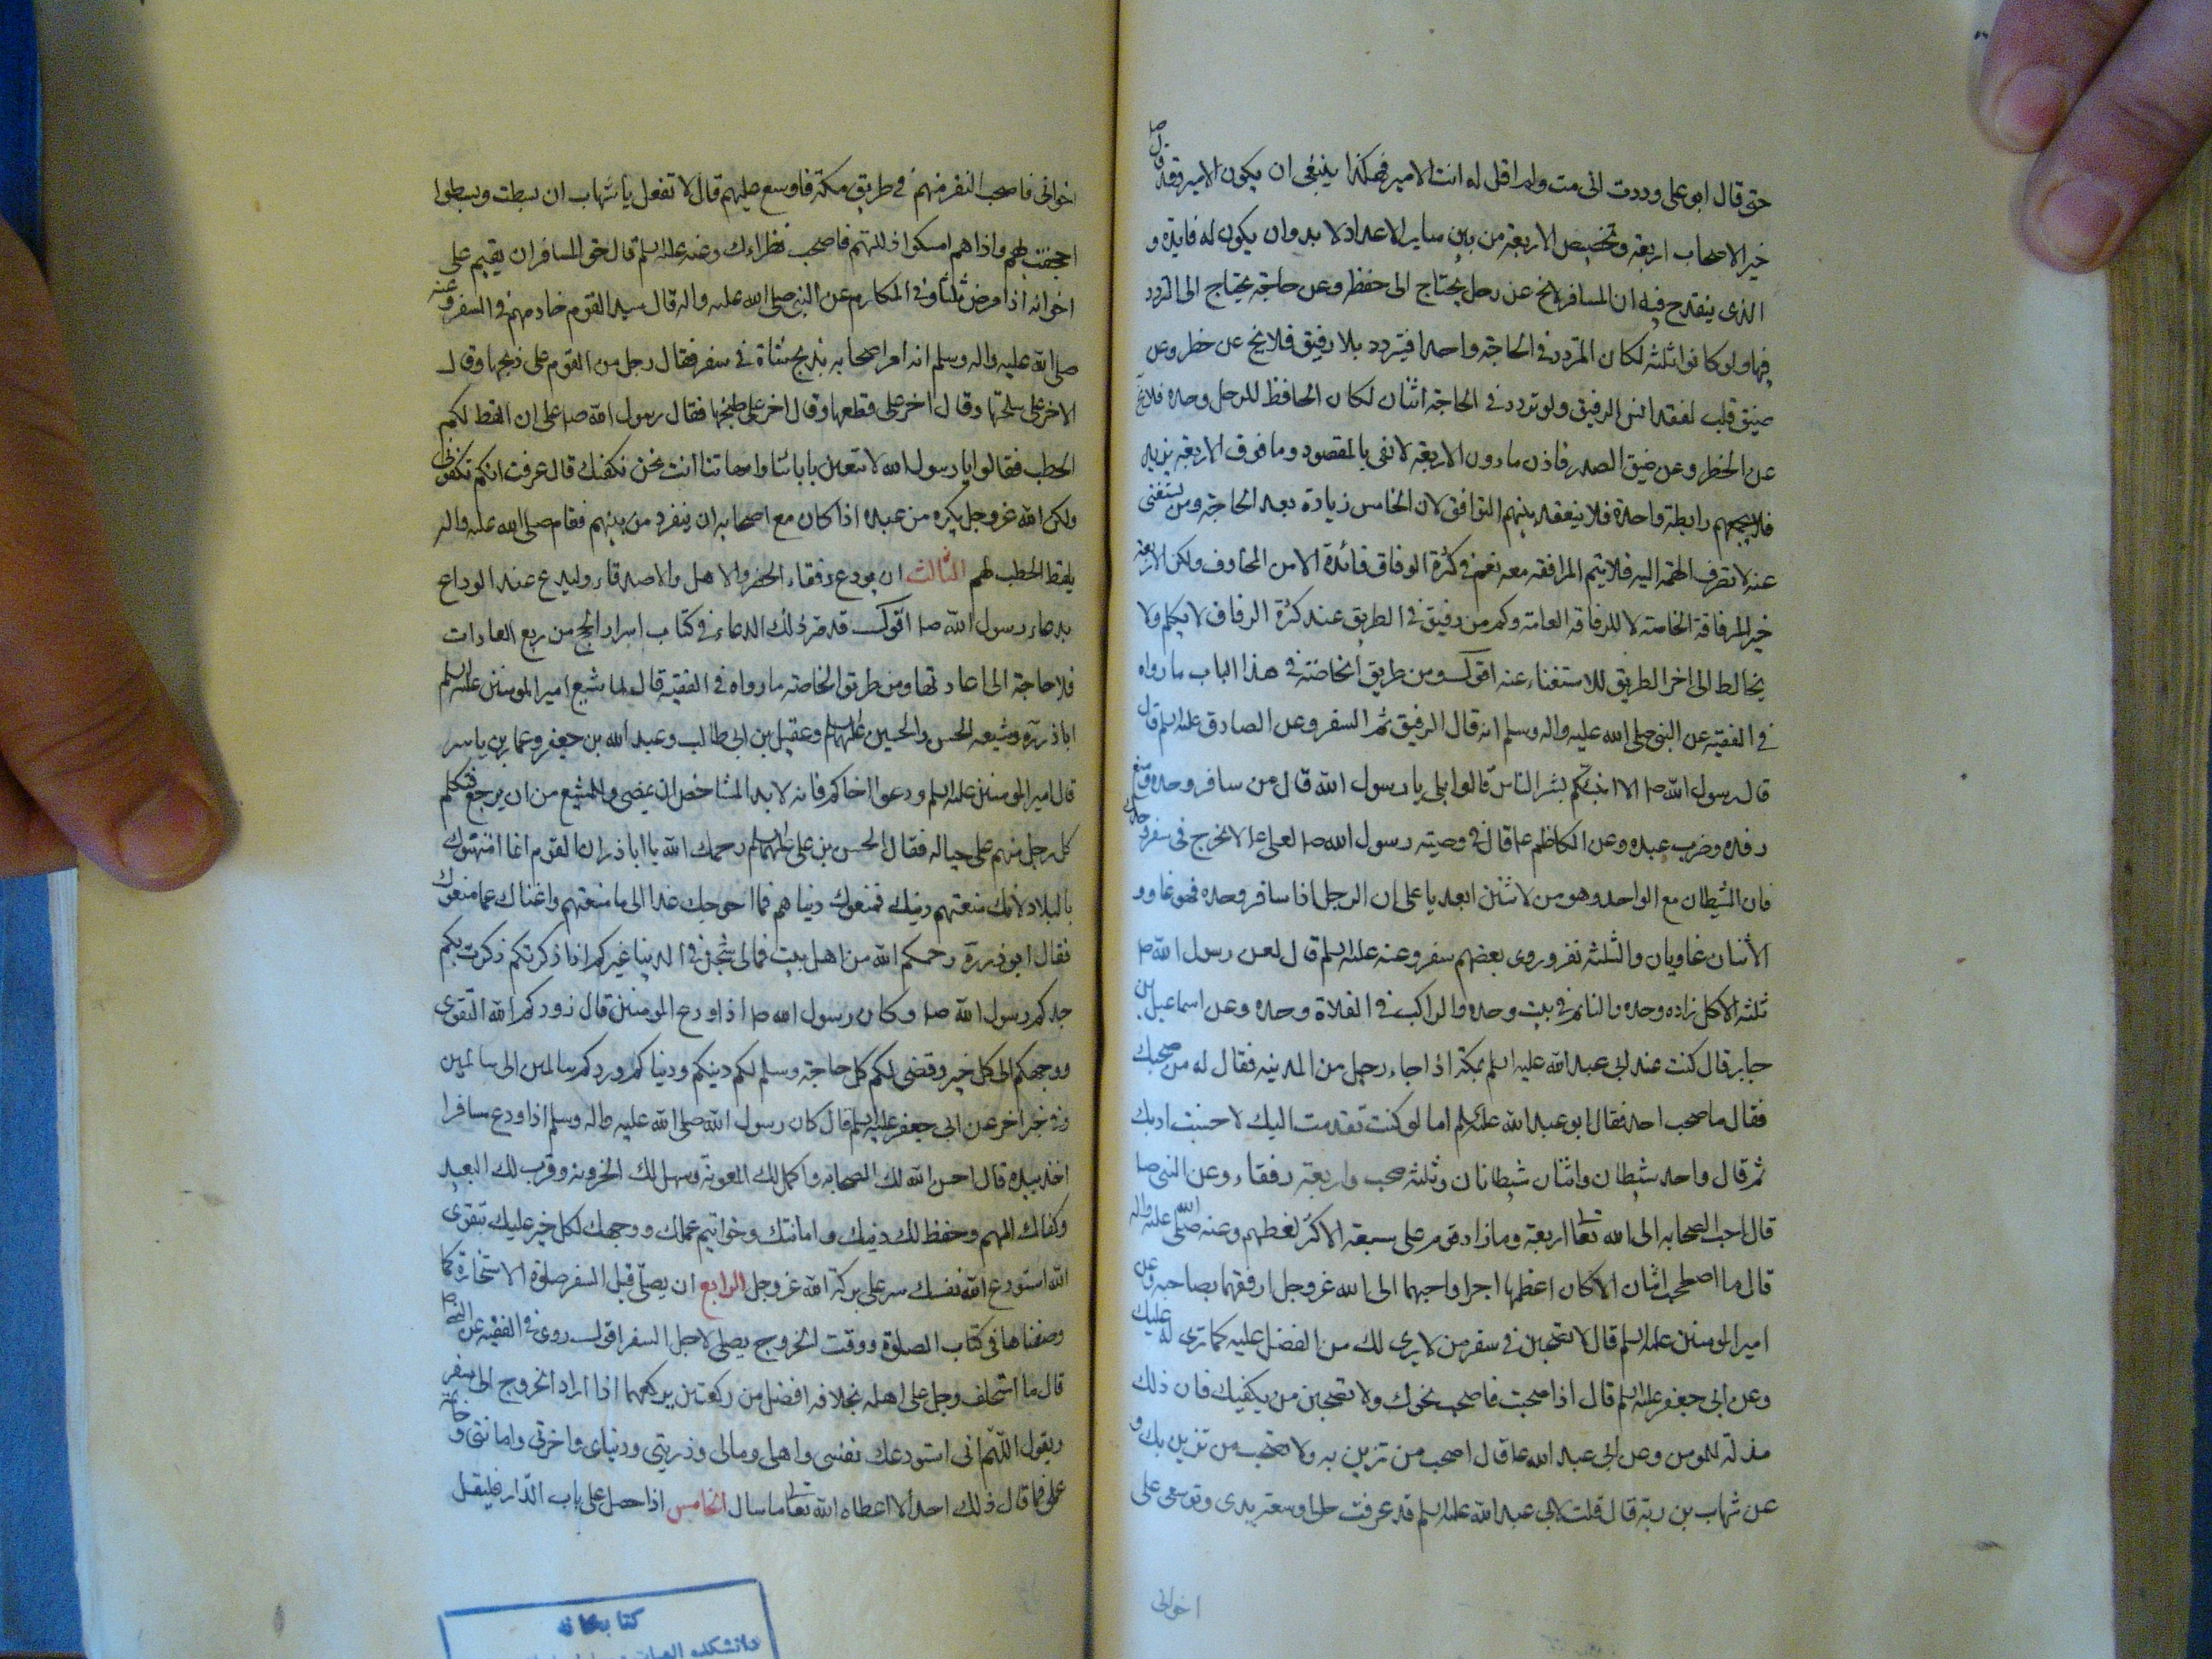 حتى قال ابو على وددت انى مت ولم اقل له انت الامير فهكذا ينبغى ان يكون الامير وقد قال صلى
خير الاصحاب اربعة وتخصيص الاربعة من بين ساير الاعداد لا بد وان يكون له فايدة و
الذى ينقدح فيه ان المسافر لا يخ عن رحل يحتاج الى حفظه وعن حاجة يحتاج الى التردد
فيها ولو كانوا ثلثه لكان المتردد فى الحاجة واحدا فيتردد بلا رفيق فلا يخ عن خطر وعن
ضيق قلب لفقد انس الرفيق ولو تردد فى الحاجة اثنان لكان الحافظ للرحل وحده فلا يخ
عن الخطر وعن ضيق الصدر فاذن ما دون الاربعة لا تفى بالمقصود وما فوق الاربعة يزيد
فلا يجمعهم رابطة واحدة فلا ينعقد بينهم التوافق لان الخامس زيادة بعد الحاجة ومن يستغنى
عنه لا تصرف الهمة اليه فلا يتم المرافقه معه نعم فى كثرة الوفاق فائدة الامن المخاوف ولكن الاربعة
خير للمرفاقة الخاصه لا للرفاقه العامه وكم من رفيق فى الطريق عند كثرة الرفاق لا يكلم ولا
يخالط الى اخر الطريق للاستغناء عنه اقول ومن طريق الخاصة فى هذا الباب ما رواه
فى الفقيه عن النبى صلى الله عليه واله وسلم انه قال الرفيق ثم السفر وعن الصادق عليه السلم قال
قال رسول الله صلى الا انبئكم بشر الناس قالوا بلى يا رسول الله قال من سافر وحده ومنع
رفده وضرب عبده وعن الكاظم ع قال فى وصية رسول الله صلى لعلى ع لا تخرج فى سفر وحدك
فان الشيطان مع الواحد وهو من لاثنين ابعد يا على ان الرجل اذا سافر وحده فهو غاو و
الاثنان غاويان والثلثه نفر وروى بعضهم سفر وعنه عليه السلم قال لعن رسول الله صلى
ثلثه الاكل زاده وحده والنائم فى بيت وحده والراكب فى الفلاة وحده وعن اسماعيل بن
جابر قال كنت عند ابى عبد الله عليه السلم بمكة اذا جاء رجل من المدينه فقال له من صحبك
فقال ما صحب احد فقال ابو عبد الله عليه السلم اما لو كنت تقدمت اليك لاحسنت ادبك
ثم قال واحد شيطان واثنان شيطانان وثلثه صحب واربعة رفقاء وعن النبى صلى
قال احب الصحابه الى الله تعالى اربعة وما زاد قوم على سبعة الا كثر لغطهم وعنه صلى الله عليه واله
قال ما اصطحب اثنان الا كان اعظمها اجرا واحبهما الى الله عز وجل ارفقهما بصاحبه وعن
امير المومنين عليه السلم قال لا تصحبن فى سفر من لا يرى لك من الفضل عليه كما ترى له عليك
وعن ابى جعفر عليه السلم قال اذا صحبت فاصحب نحوك ولا تصحبن من يكفيك فان ذلك
مذلة للمومن وعن ابى عبد الله ع قال اصحب من تزين به ولا تصحب من تزين بك و
عن شهاب بن ربه قال قلت لابى عبد الله عليه السلم قد عرفت حالى وسعة يدى وتوسعى على
اخوانى
اخوانى فاصحب النفر منهم فى طريق مكة فاوسع عليهم قال لا تفعل يا شهاب ان بسطت وبسطوا
اجحفت بهم واذا هم امسكوا اذللتهم فاصحب نظراءك وعنه عليه السلم قال حق المسافر ان يقيم على
اخوانه اذا مرض ثلثا وفى المكارم عن النبى صلى الله عليه واله قال سيد القوم خادمهم فى السفر وعنه
صلى الله عليه واله وسلم انه امر اصحابه بذبح شاة فى سفر فقال رجل من القوم على ذبحها وقال
الاخر على سلخها وقال اخر على قطعها وقال اخر على طبخها فقال رسول الله صلى على ان القط لكم
الحطب فقالوا يا رسول الله لا تتعبن بابائنا وامهاتنا انت نحن نكفيك قال عرفت انكم تكفونى
ولكن الله عز وجل يكره من عبده اذا كان مع اصحابه ان ينفرد من بينهم فقام صلى الله عليه واله
يلقط الحطب لهم الثالث ان يودع رفقاء الحضر والاهل والاصدقاء وليدع عند الوداع
بدعاء رسول الله صلى اقول قد مر ذلك الدعاء فى كتاب اسرار الحج من ربع العادات
فلا حاجة الى اعادتها ومن طريق الخاصه ما رواه فى الفقيه قال لما شيع امير المومنين عليه السلم
ابا ذر ره وشيعه الحسن والحسين عليهما السلم وعقيل بن ابى طالب وعبد الله بن جعفر وعمار بن ياسر
قال امير المومنين عليه السلم ودعوا اخاكم فانه لا بد المشاخص ان يمضى وللمشيع من ان يرجع فتكلم
كل رجل منهم على حياله فقال الحسن بن على عليهما السلم رحمك الله يا ابا ذر ان القوم انما امتهنوك
بالبلاء لانك منعتهم دينك فمنعوك دنياهم فما احوجك غدا الى ما منعتهم واغناك عما منعوك
فقال ابو ذر ره رحمكم الله من اهل بيت فمالى شجن فى الدنيا غيركم اذا ذكرتكم ذكرت بكم
جدكم رسول الله صلى وكان رسول الله صلى اذا ودع المومنين قال زودكم الله التقوى
ووجهكم الى كل خير وقضى لكم كل حاجة وسلم لكم دينكم ودنياكم وردكم سالمين الى سالمين
وفى خبر اخر عن ابى جعفر عليه السلم قال كان رسول الله صلى الله عليه واله وسلم اذا ودع مسافرا
اخذ بيده قال احسن الله لك الصحابه واكمل لك المعونة وسهل لك الحزونه وقرب لك البعيد
وكفاك المهم وحفظ لك دينك وامانتك وخواتيم عملك ووجهك لكل خير عليك بتقوى
الله استودع الله نفسك سر على بركة الله عز وجل الرابع ان يصلى قبل السفر صلوة الاستخارة كما
وصفناها فى كتاب الصلوة ووقت الخروج يصلى لاجل السفر اقول روى فى الفقيه عن النبى صلى
قال ما استخلف رجل على اهله بخلافه افضل من ركعتين يركعهما اذا اراد الخروج الى سفر
ويقول اللهم انى استودعك نفسى واهلى ومالى وذريتى ودنياى واخرتى وامانتى وخاتمة
عملى فما قال ذلك احد الا اعطاه الله تعالى ما سال الخامس اذا حصل على باب الدار فليقل
كتابخانه
دانشكده الهيات